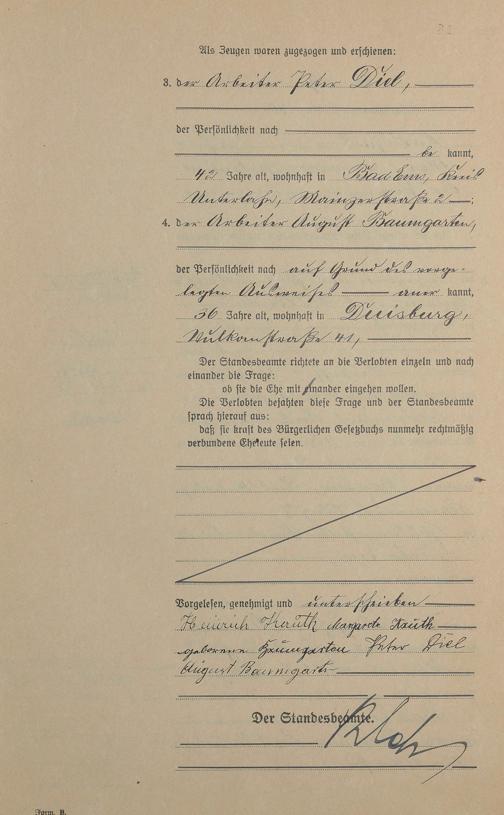 Als Zeugen waren zugezogen und erschienen:
3. der Arbeiter Peter Diel,
der Persönlichkeit nach
be kannt,
42 Jahre alt, wohnhaft in Bad Ems, Kreis
Unterlahn, Mainzerstraße 2 ;
4. der Arbeiter August Baumgarten,
der Persönlichkeit nach auf Grund des vorge-
legten Ausweises aner kannt,
56 Jahre alt, wohnhaft in Duisburg,
Vulkanstraße 41,
Der Standesbeamte richtete an die Verlobten einzeln und nach
einander die Frage:
ob sie die Ehe mit einander eingehen wollen.
Die Verlobten bejahten diese Frage und der Standesbeamte
sprach hierauf aus:
daß sie kraft des Bürgerlichen Gesetzbuchs nunmehr rechtmäßig
verbundene Eheleute seien.
Vorgelesen, genehmigt und unterschrieben
Heinrich Knuth Knuth
geborene Baumgarten Peter Diel
August Baumgarten
Der Standesbeamte.
Form. B.